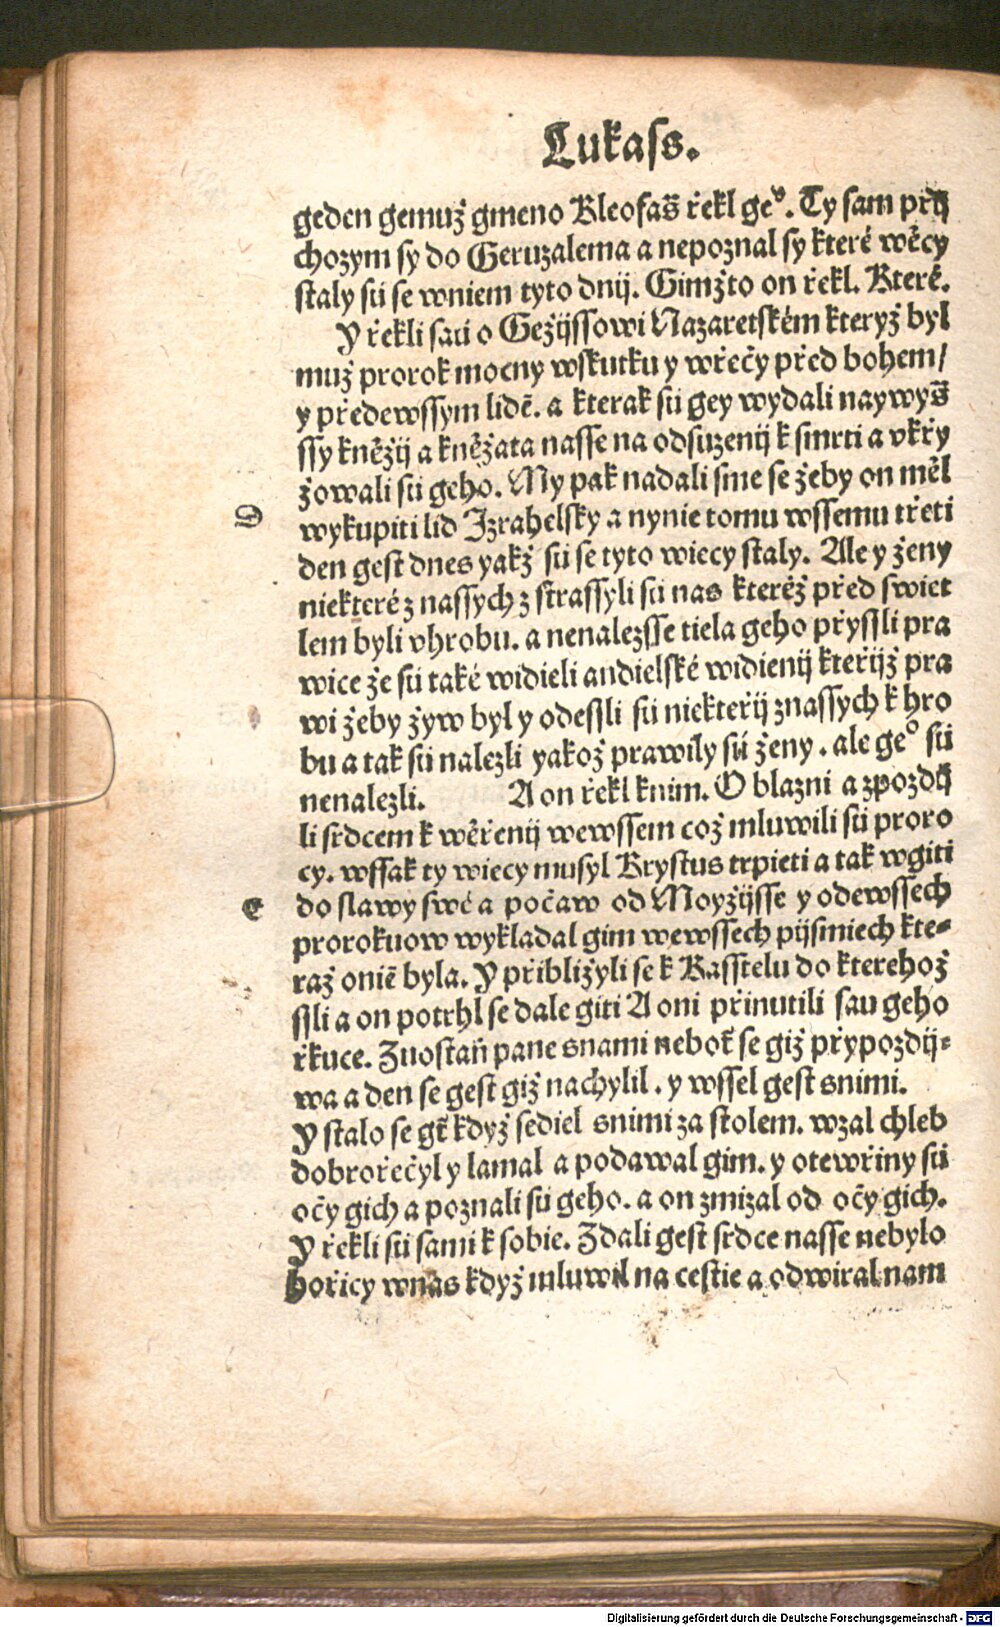 Lukass.
geden gemuż gmeno Kleofas̄ řekl geͮ. Ty sam přij
chozym sy do Geruzalema a nepoznal sy které wěcy
staly sú se wniem tyto dnij. Gimżto on řekl. Které.
Y řekli saú o Geżijssowi Nazaretském kteryż byl
muż prorok mocny wskutku y wřečy před bohem/
y předewssym lidē. a kterak sú gey wydali naywys̄
ssy kněżij a kněżata nasse na odsuzenij k smrti a vkřy
żowali sú geho. My pak nadali sme se żeby on měl
D
wykupiti lid Jzrahelsky a nynie tomu wssemu třeti
den gest dnes yakż sú se tyto wiecy staly. Ale y żeny
niekteré z nassych z strassyli sú nas kteréż před swiet
lem byli vhrobu. a nenalezsse tiela geho přyssli pra
wice że sú také widieli andielské widienij kteřijż pra
wi żeby żyw byl y odessli sú niekteřij znassych k hro
bu a tak sú nalezli yakoż prawily sú żeny. ale geͦ sú
nenalezli. A on řekl knim. O blazni a zpozdij
li srdcem k wěřenij wewssem coż mluwili sú proro
cy. wssak ty wiecy musyl Krystus trpieti a tak wgiti
E
do slawy swé a počaw od Moyżijsse y odewssech
prorokuow wykladal gim wewssech pijsmiech kte⸗
raż oniē byla. Y přibliżyli se k Kasstelu do kterehoż
ssli a on potrhl se dale giti A oni přinutili sau geho
řkuce. Zuostaň pane snami nebot̆ se giż přypozdij⸗
wa a den se gest giż nachylil. y wssel gest snimi.
Y stalo se gt̄ kdyż sediel snimi za stolem. wzal chleb
dobrořečyl y lamal a podawal gim. y otewřiny sú
očy gich a poznali sú geho. a on zmizal od očy gich.
Y řekli sú sami k sobie. Zdali gest srdce nasse nebylo
hořicy wnas kdyż mluwil na cestie a odwiral nam
Digitalisierung gefördert durch die Deutsche Forschungsgemeinschaft - DFG